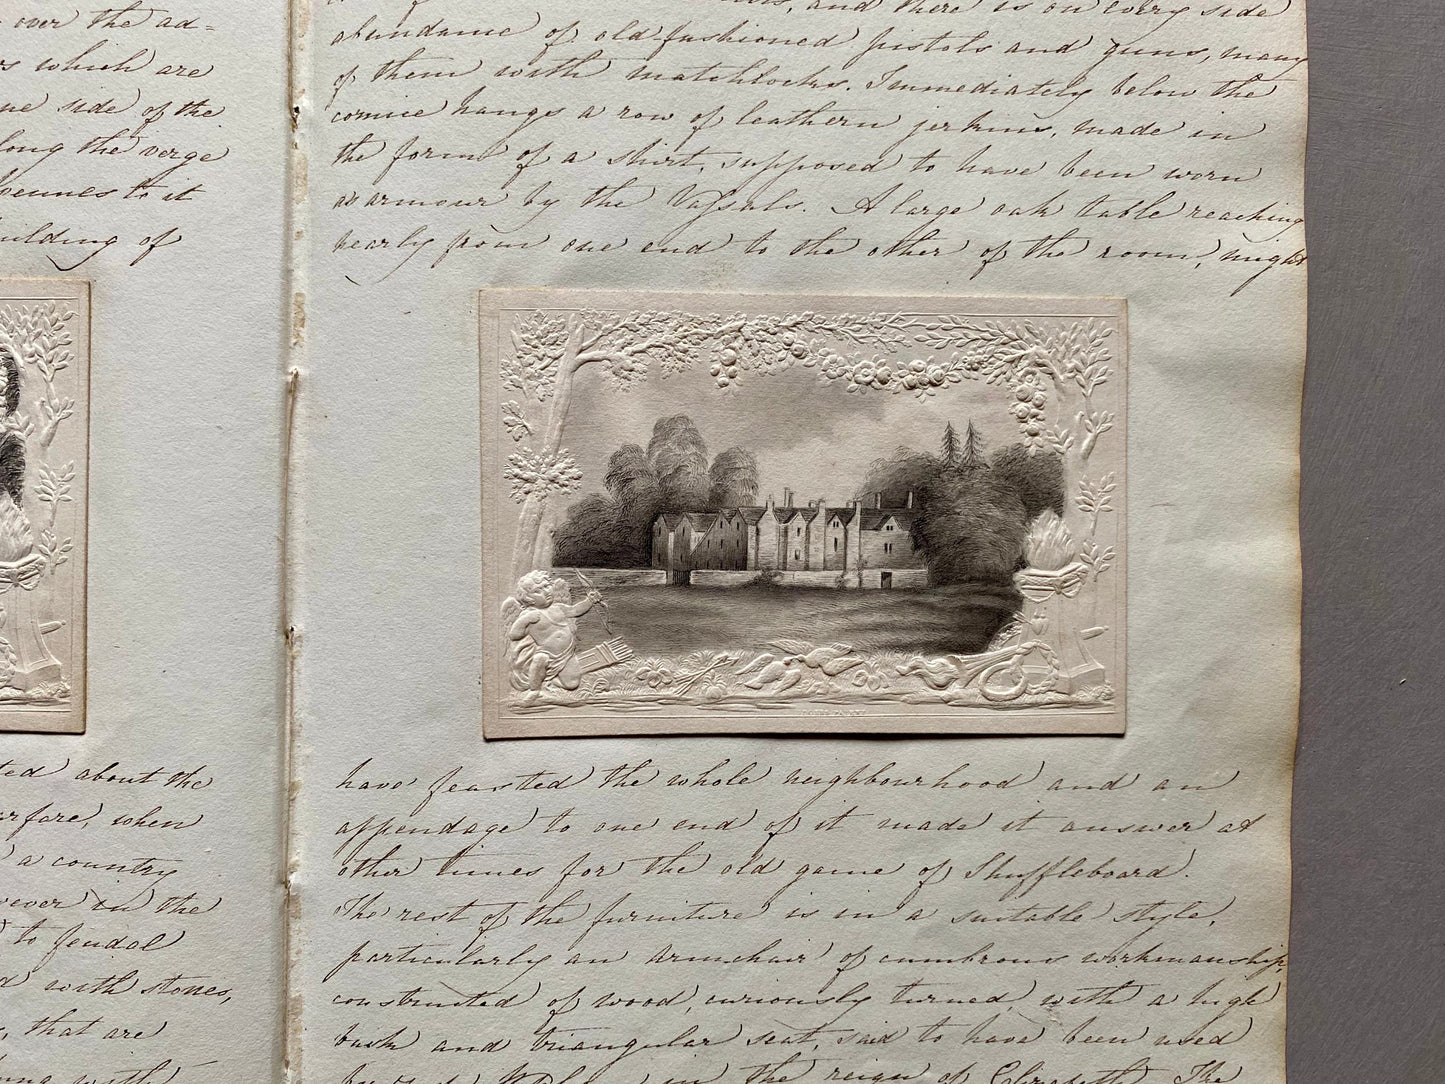 over the ad=
which are
one side of the
along the verge
to it
building of
and there is on every side
abundance of old fashioned pistols and guns, many
of them with matchlocks. Immediately below the
cornice hangs a row of leathern jerkins, made in
the form of a shirt, supposed to have been worn
as armour by the Vassals. A large oak table reaching
nearly from one end to the other of the room, might
about the
when
a country
in the
to feudal
with stones,
that are
with
have feasted the whole neighbourhood and an
appendage to one end of it made it answer at
other times for the old game of Shuffleboard.
The rest of the furniture is in a suitable style,
particularly an armchair of cumbrous workmanship,
constructed of wood, curiously turned, with a high
back and triangular seat, said to have been used
in the reign of Elizabeth. The